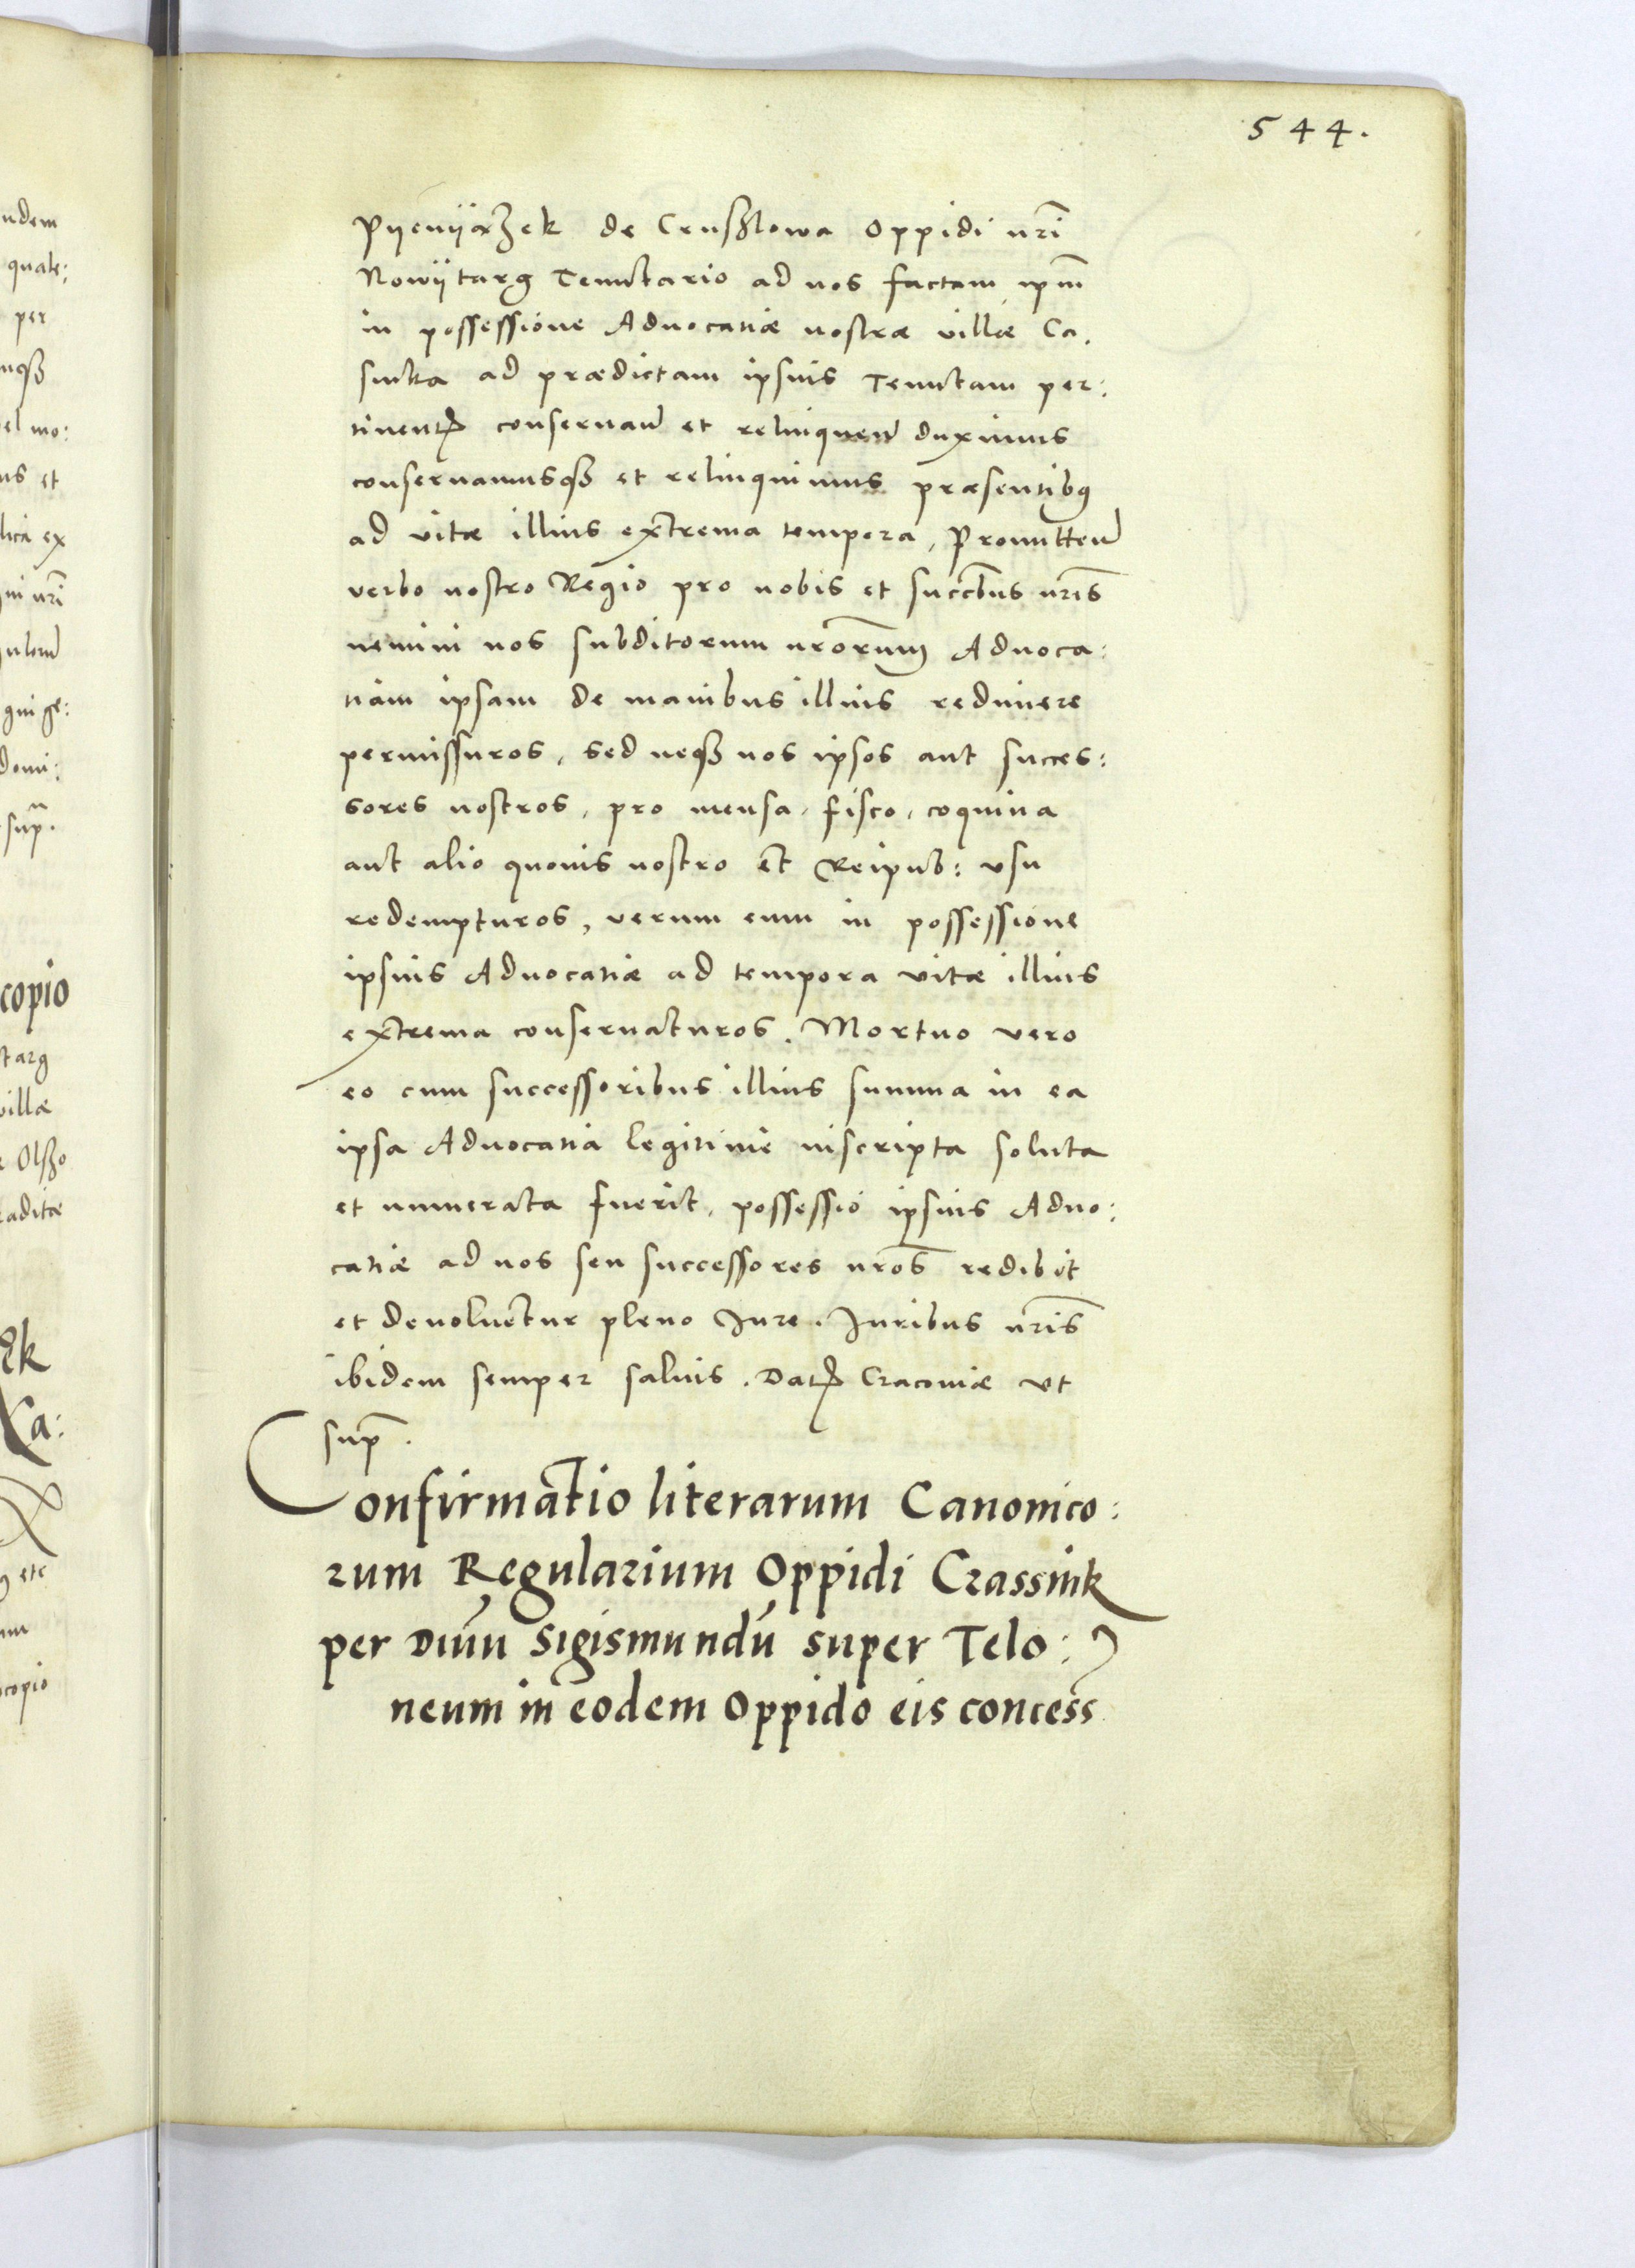 544.
Pyenyązek de Crusżlowa oppidi nr̃i
Nowytarg Tenutario ad nos factam, ipm̃
in possessione Aduocatiæ nostræ villæ Ca.
sinka ad prædictam ipsius Tenutam per:
tinent̃ conseruand̃ et relinquend̃ duximus
conseruamusqȝ et relinquimus præsentibus
ad vitæ illius extrema tempora, Promitten̄
verbo nostro Regio pro nobis et succ̃bus nr̃is
nemini nos subditorum nr̃orum Aduoca:
tiam ipsam de manibus illius redimere
permissuros, sed neqȝ nos ipsos aut succes:
sores nostros, pro mensa, fisco, coquina
aut alio quouis nostro et Reipub: vsu
redempturos, verum eum in possessione
ipsius Aduocatiæ ad tempora vitæ illius
extrema conseruaturos. Mortuo vero
eo cum successoribus illius summa in ea
ipsa Aduocatia legitime inscripta soluta
et numerata fuerit, possessio ipsius Aduo:
catiæ ad nos seu successores nr̃os redibit
et deuoluetur pleno Jure. Juribus nr̃is
ibidem semper saluis. Dat̃ Cracouiæ vt
sup̃.
Confirmatio literarum Canonico:
rum Regularium Oppidi Crassnik
per Diuũ Sigismundũ super Telo:
neum in eodem Oppido eis concess